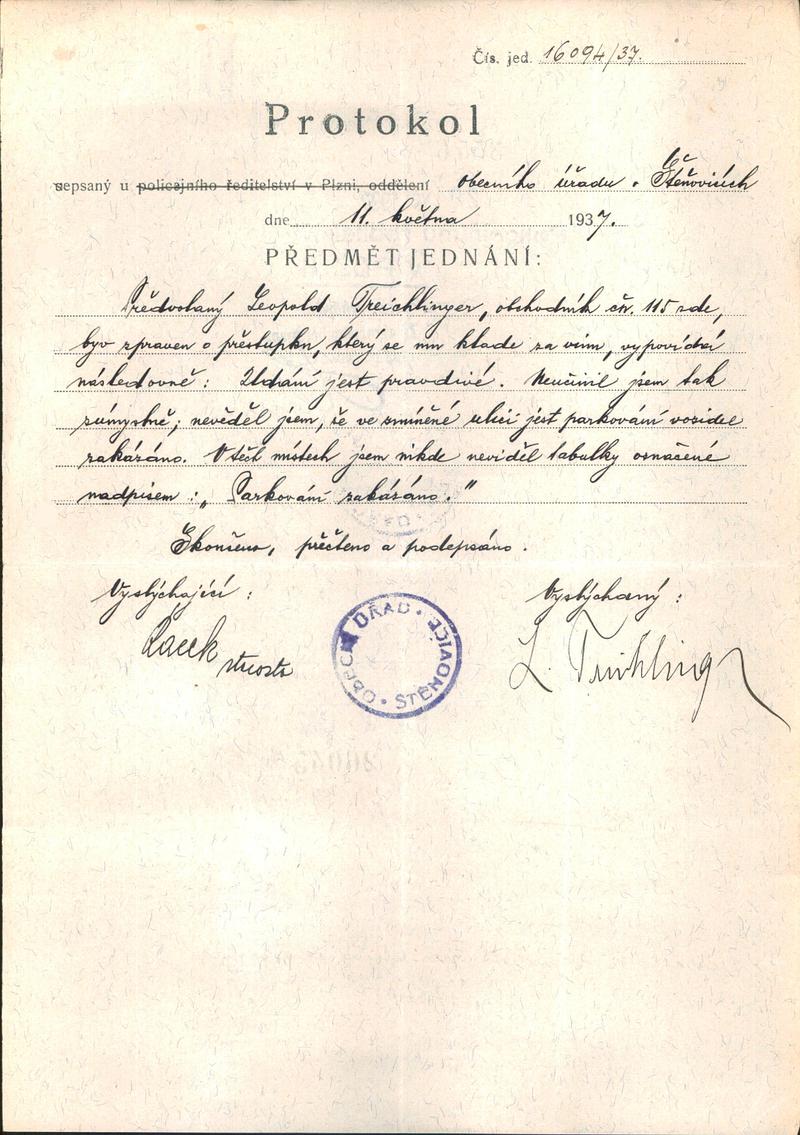 Čís. jed. 16094/37.
Protokol
sepsaný u policejního ředitelství v Plzni, oddělení obecního úřadu v Štěnovicích
dne 11. května 1937.
PŘEDMĚT JEDNÁNÍ:
Předvolaný Leopold Treichlinger, obchodník čp. 115 zde,
byv zpraven o přestupku, který se mu klade za vinu, vypovídá
následovně: Udání jest pravdivé. Neučinil jsem tak
zúmyslně; nevěděl jsem, že ve zmíněné ulici jest parkování vozidel
zakázáno. V těch místech jsem nikde neviděl tabulky označené
nadpisem: „Parkování zakázáno."
Skončeno, přečteno a podepsáno.
Vyslýchající: Vyslýchaný:
starosta L. Treichlinger
OBECNÍ ÚŘAD • ŠTĚNOVICE •